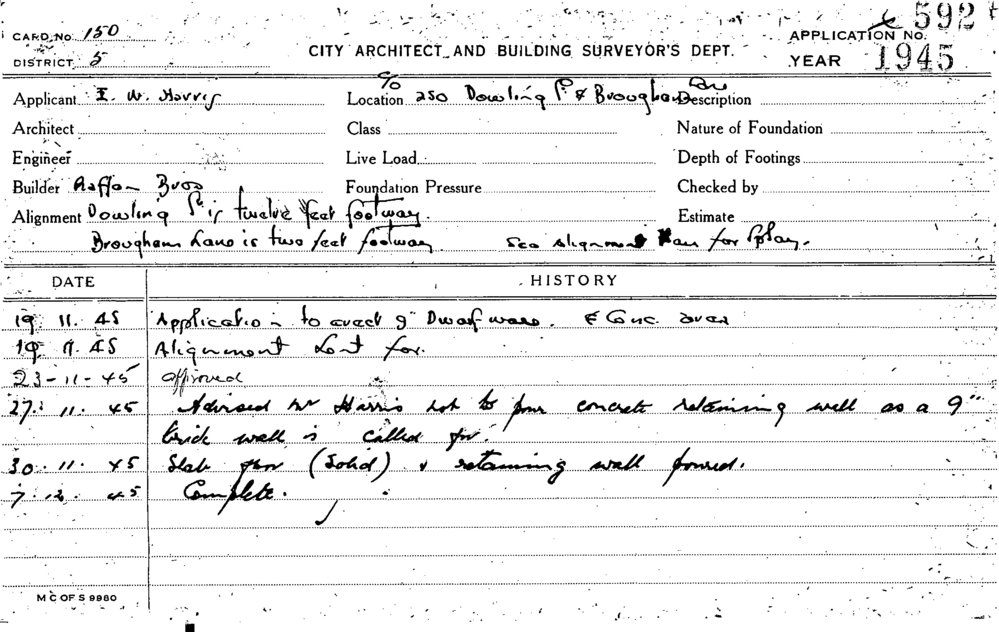 592
CARD No. 150
APPLICATION NO.
DISTRICT 5
CITY ARCHITECT AND BUILDING SURVEYOR'S DEPT.
YEAR 1945
Applicant I. W. Harris
Location c/o 250 Dowling St & Brougham Lane
Description
Architect
Class
Nature of Foundation
Engineer
Live Load
Depth of Footings
Builder Raffan Bros
Foundation Pressure
Checked by
Alignment Dowling St is twelve feet footway.
Estimate
Brougham Lane is two feet footway See Alignment for Splay.
DATE
HISTORY
19 11. 45 Application to erect 9" Dwarf & Conc. over
19. 11. 45 Alignment for.
23-11-45 approved
27. 11. 45 Advised Mr Harris not to pour concrete retaining wall as a 9"
brick wall is called for.
30. 11. 45 Slab (Solid) & retaining wall poured.
7. 12. 45 Complete.
M C OF S 9980